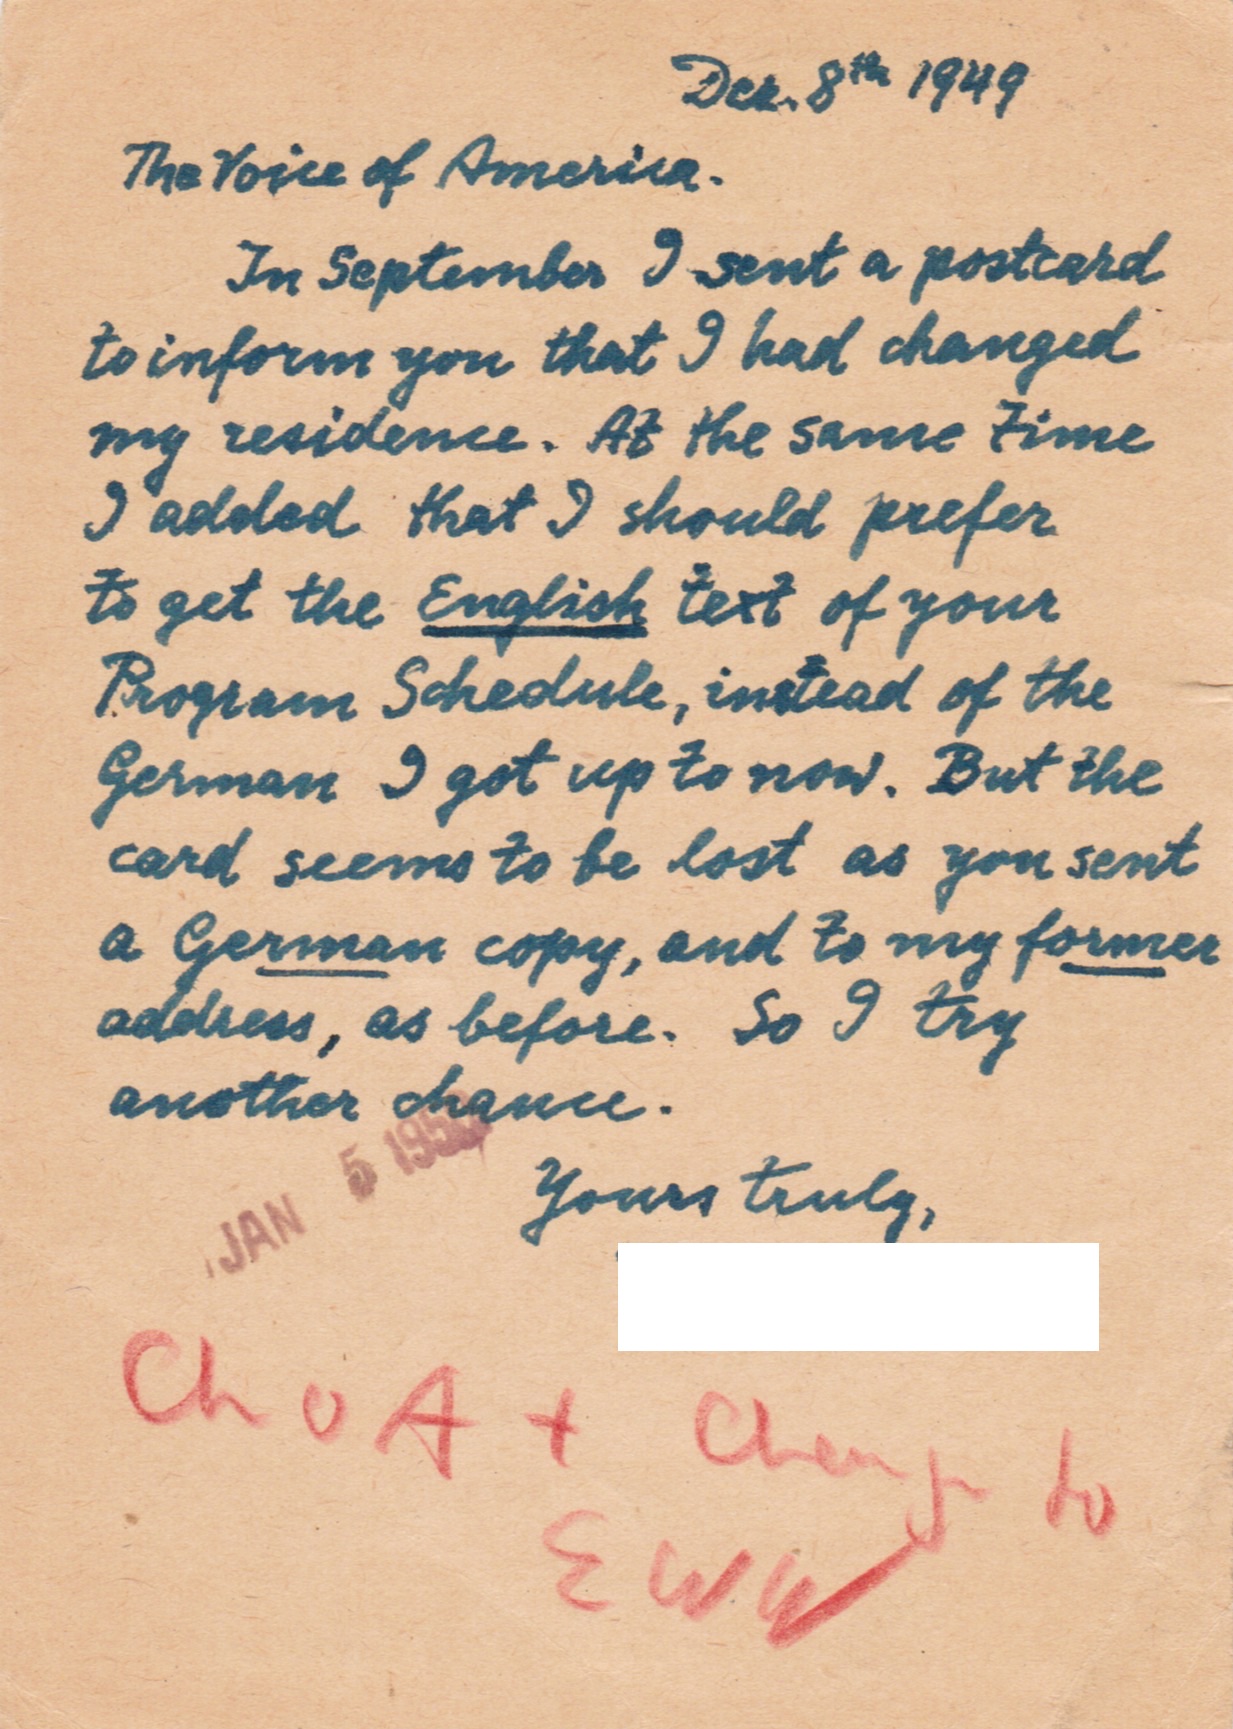 Dez. 8th 1949
The Voice of America.
In September I sent a postcard
to inform you that I had changed
my residence. At the same time
I added that I should prefer
to get the English text of your
Program Schedule, instead of the
German I got up to now. But the
card seems to be lost as you sent
a German copy, and to my former
address, as before. So I try
another chance.
JAN 5 1950
Yours truly,
Ch o A + Change to
E W W